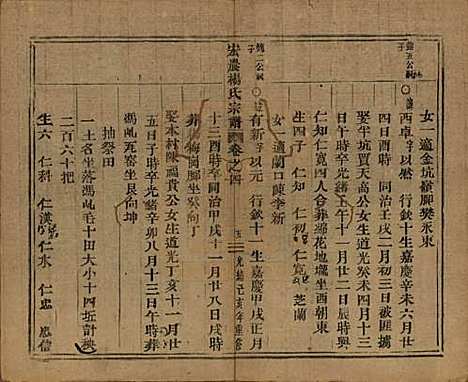 女一適金坑嶺腳樊永東
酉卓字以然 行欽十生嘉慶辛未六月廿
四日酉時 同治壬戌二月初三日被匪擄
娶半坑賈天高公女生道光癸未四月十三
日午時卒光緒壬午十一月廿二日辰時與
仁知仁寬四人合葬綿花地壠坐西朝東
生 仁知 仁初 仁寬 芝蘭
女一適蘭口陳李新
有新字以元 行欽十一生嘉慶甲戌正月
宏農楊氏宗譜 卷之四
光緒己亥年重修
十三酉時卒同治甲戌十一月廿八日戌時
葬楊梅岡腳坐癸向丁
娶本村陳福貴公女生道光丁亥十一月廿
五日子時卒光緒辛卯八月十三日午時葬
馮屼瓦窰坐艮向坤
抽祭田
一土名坐落馮屼毛十田大小十四坵計秧
二百六十把
生六 仁科 仁漢 仁水 仁忠 忠信